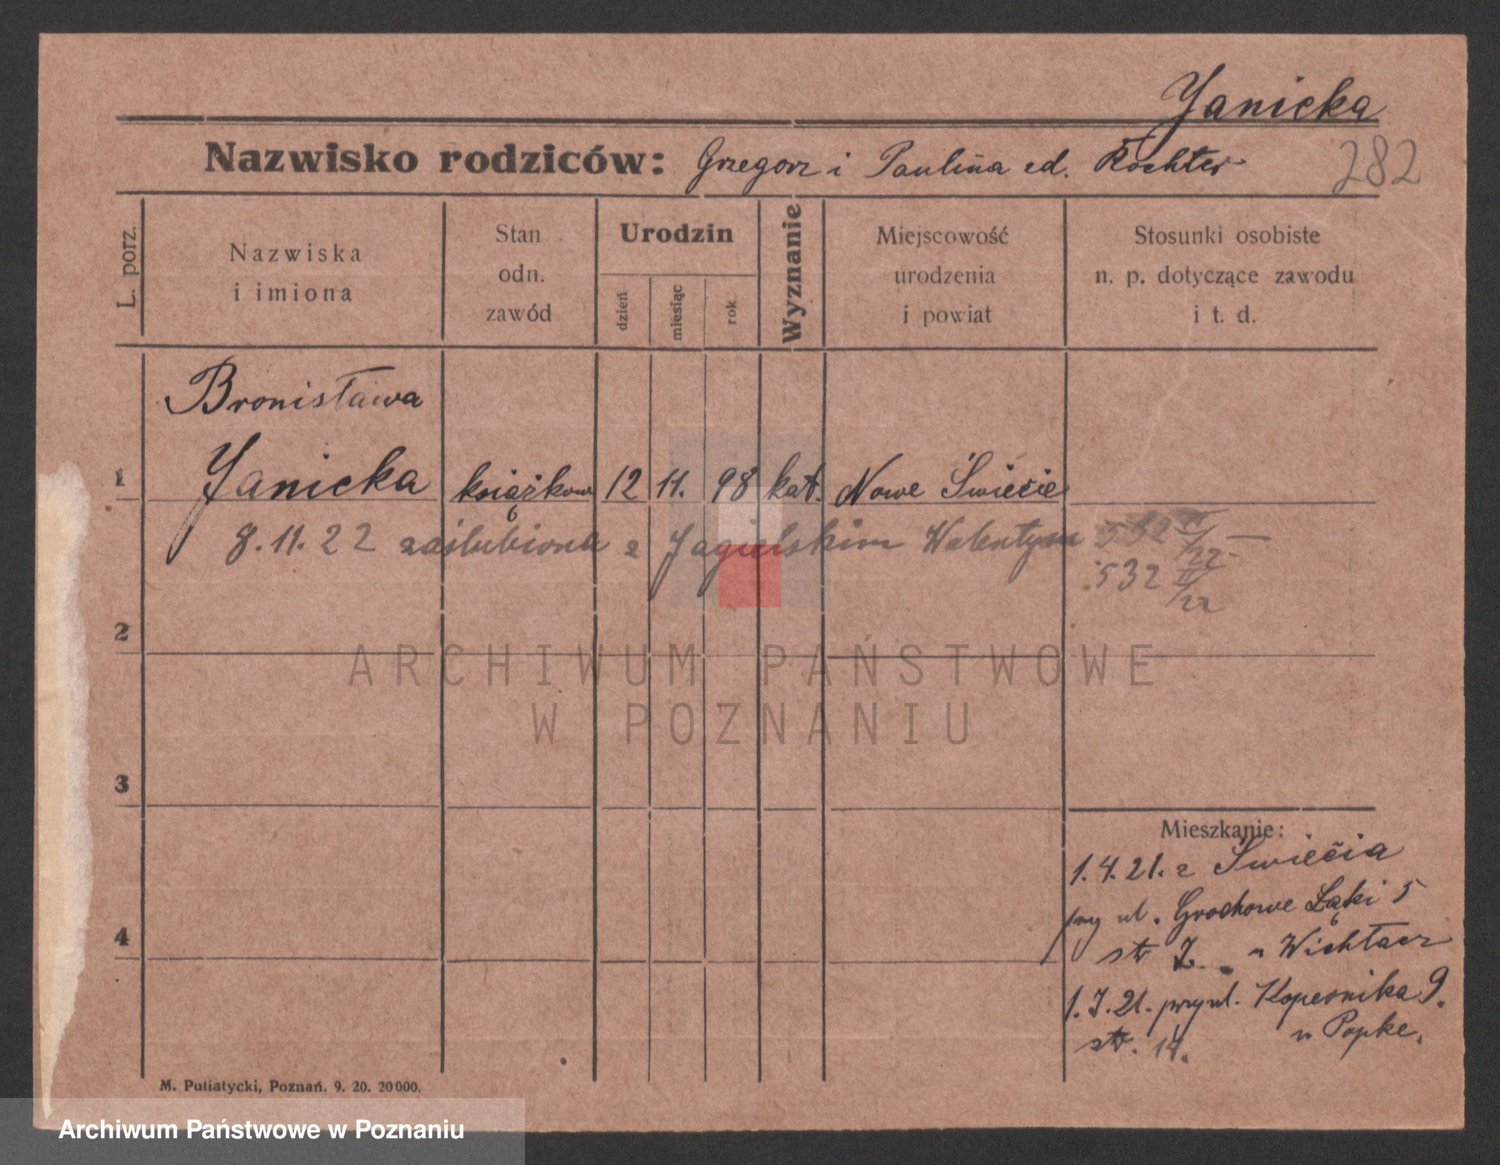 Janicka
Nazwisko rodziców: Grzegorz i Paulina
282
L. porz.
Nazwiska
i imiona
Stan
odn.
zawód
Urodzin
dzień
miesiąc
rok
Wyznanie
Miejscowość
urodzenia
i powiat
Stosunki osobiste
n. p. dotyczące zawodu
i t. d.
Bronisława
1 Janicka książkow 12 11. 98 kat. Nowe Świecie
8.11.22 zaślubiona z Jagielskim Walentym 532 /22
532 /22
2
ARCHIWUM PAŃSTWOWE
W POZNANIU
3
Mieszkanie:
1.4.21. z Świecia
przy ul. Grochowe Łąki 5
4
str u Wichłacz
1.7.21. przy ul. Kopernika 9.
str. 14. u Popke.
M. Putiatycki, Poznań. 9. 20. 20000.
Archiwum Państwowe w Poznaniu